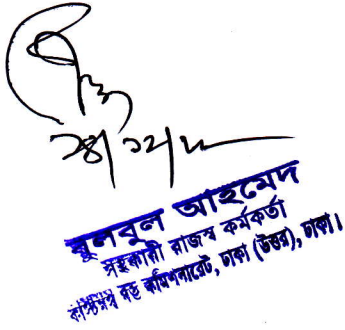 বুলবুল আহমেদ
সহকারী রাজস্ব কর্মকর্তা
কাস্টমস বন্ড কমিশনারেট, ঢাকা (উত্তর), ঢাকা।